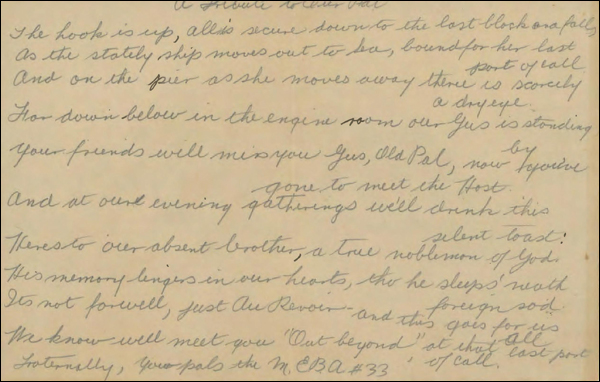 A Tribute to Our Pal
The hook is up, all is secure down to the last block and fall,
As the stately ship moves out to sea, bound for her last
port of call
And on the pier as she moves away there is scarcely
a dry eye.
Far down below in the engine room our Gus is standing
by
Your friends will miss you Gus, Old Pal, now you've
gone to meet the Host.
And at our evening gatherings we'll drink this
silent toast:
Here's to our absent brother, a true nobleman of God.
His memory lingers in our hearts, tho he sleeps 'neath
foreign sod.
Its not farwell, just Au Revoir - and this goes for us
all
We know we'll meet you "Out beyond" at that last port
of call.
Fraternally, Your pals the M.E.B.A #33